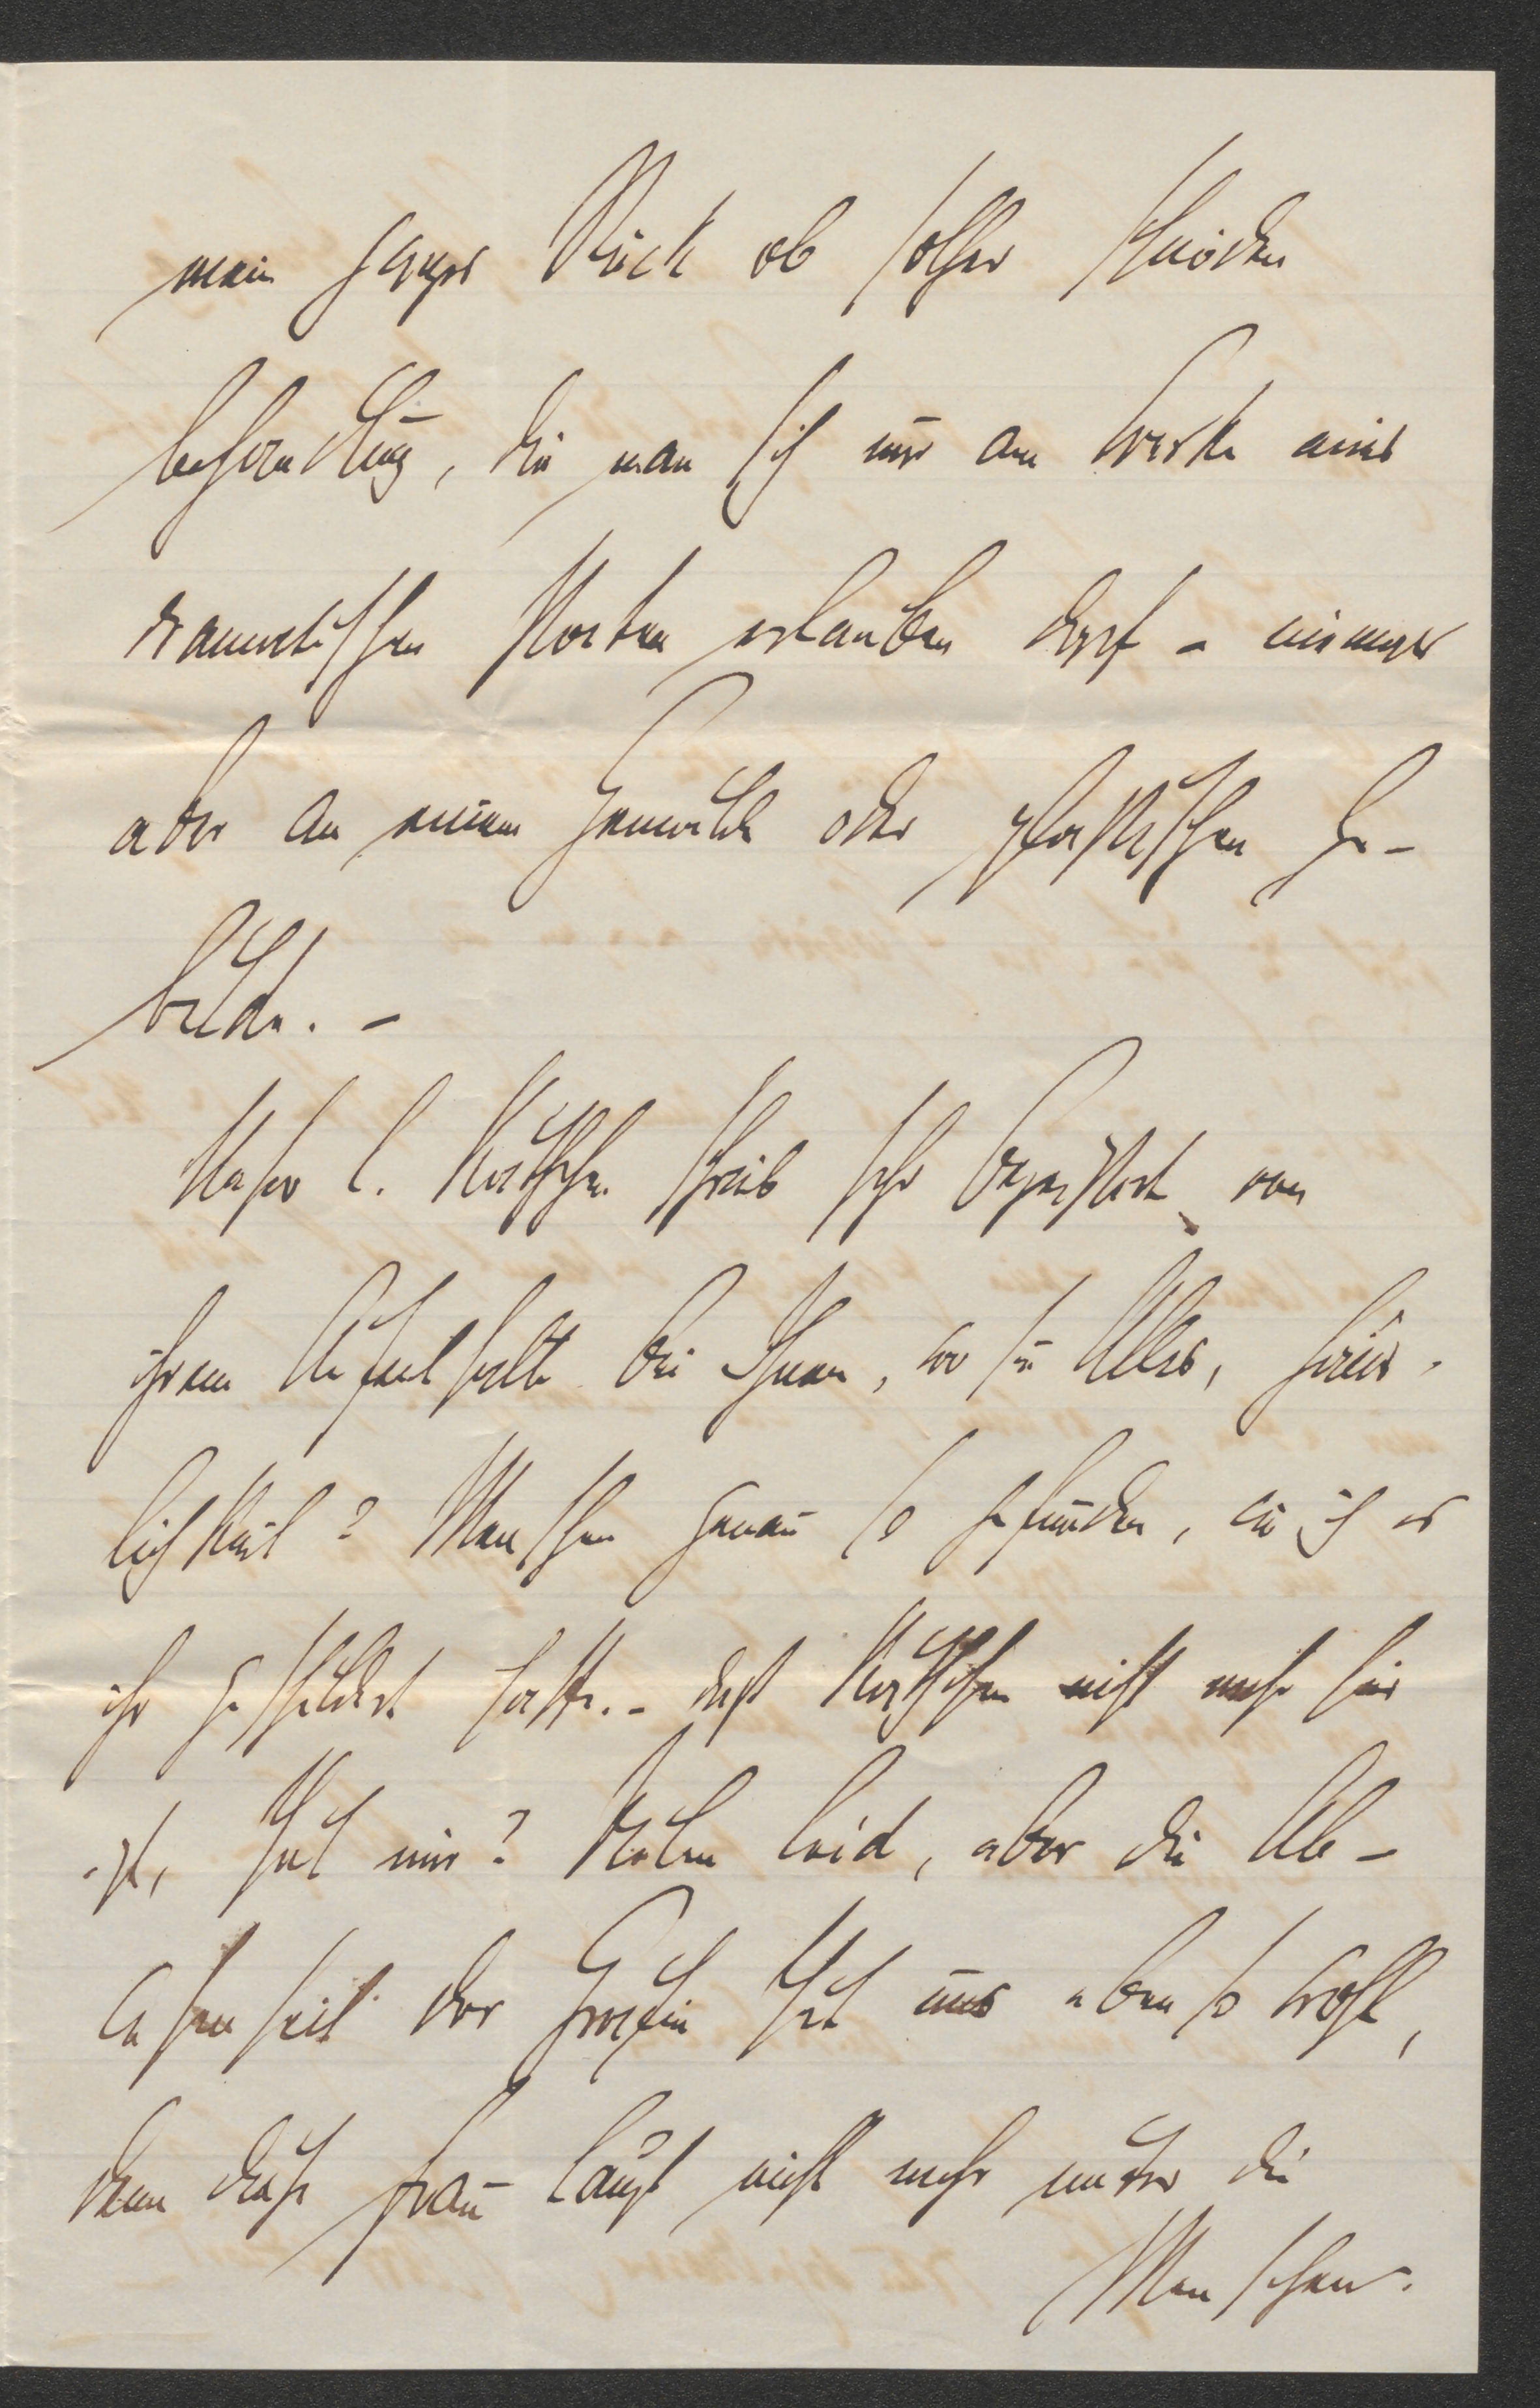 mein ganzes Stück ob solcher schnöden
behandlung, die man sich nur am Werke eines
dramatischen Poeten erlauben darf – nimmer
aber an einem Gemälde oder plastischen Ge-
bilde. –
Unser l. Käthchen schrieb sehr begeistert von
ihrem Aufenthalte bei Ihnen, wo sie Alles, Häus-
lichkeit & Menschen genau so gefunden, wie ich es
ihr geschildert hatte. – daß Käthchen nicht mehr hier
ist, thut mir & Vielen leid, aber die Ab-
wesenheit der Gräfin thut uns eben so wohl,
denn diese Frau taugt nicht mehr unter die
Menschen.